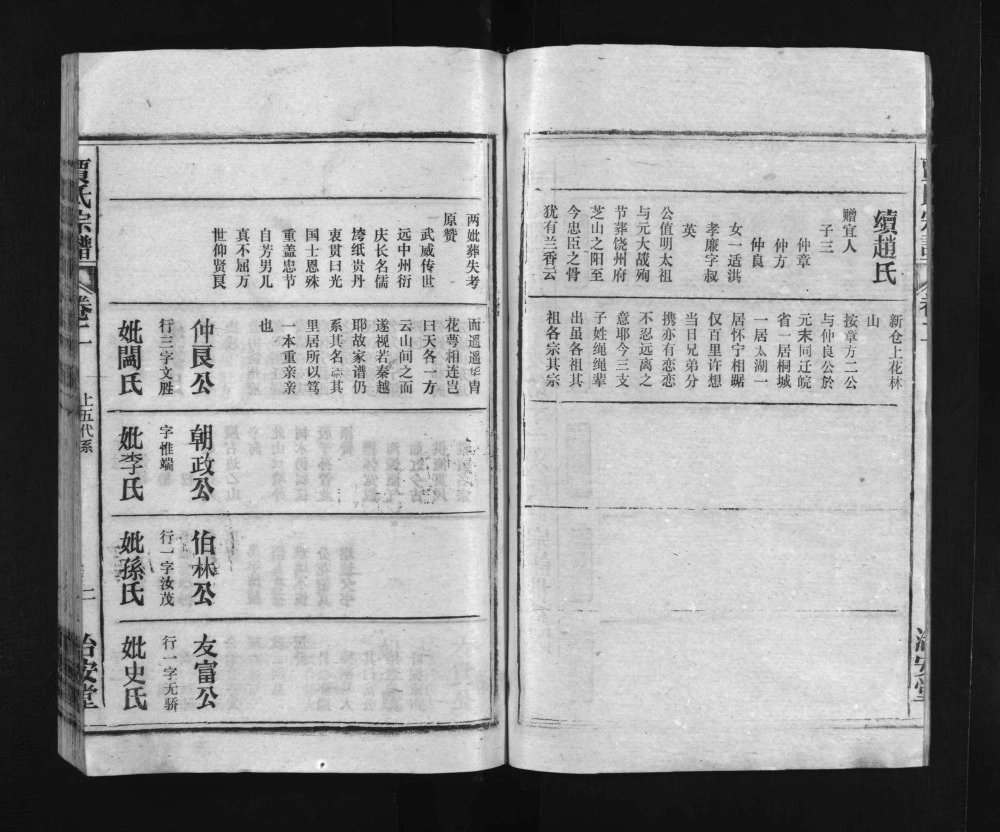 續趙氏
赠宜人
子三
仲章
仲方
仲良
女一适洪
孝廉字叔
英
公值明太祖
与元大战殉
节葬饶州府
芝山之阳至
今忠臣之骨
犹有兰香云
新仓上花林
山
按章方二公
与仲良公於
元末同迁皖
省一居桐城
一居太湖一
居怀宁相踞
仅百里许想
当日兄弟分
携亦有恋恋
不忍远离之
意耶今三支
子姓绳绳辈
出虽各祖其
祖各宗其宗
两妣葬失考
原赞
武威传世
远中州衍
庆长名儒
垮纸贵丹
衷贯曰光
国士恩殊
重盖忠节
自芳男儿
真不屈万
世仰贤良
而遥遥华胄
花萼相连岂
曰天各一方
云山间之而
遂视若秦越
耶故家谱仍
系其名志其
里居所以笃
一本重亲亲
也
仲良公
行三字文胜
妣閻氏
朝政公
字惟端
妣李氏
伯林公
行一字汝茂
妣孫氏
友富公
行一字无骄
妣史氏
賈氏宗譜
卷十一
上五代系
二
治安堂